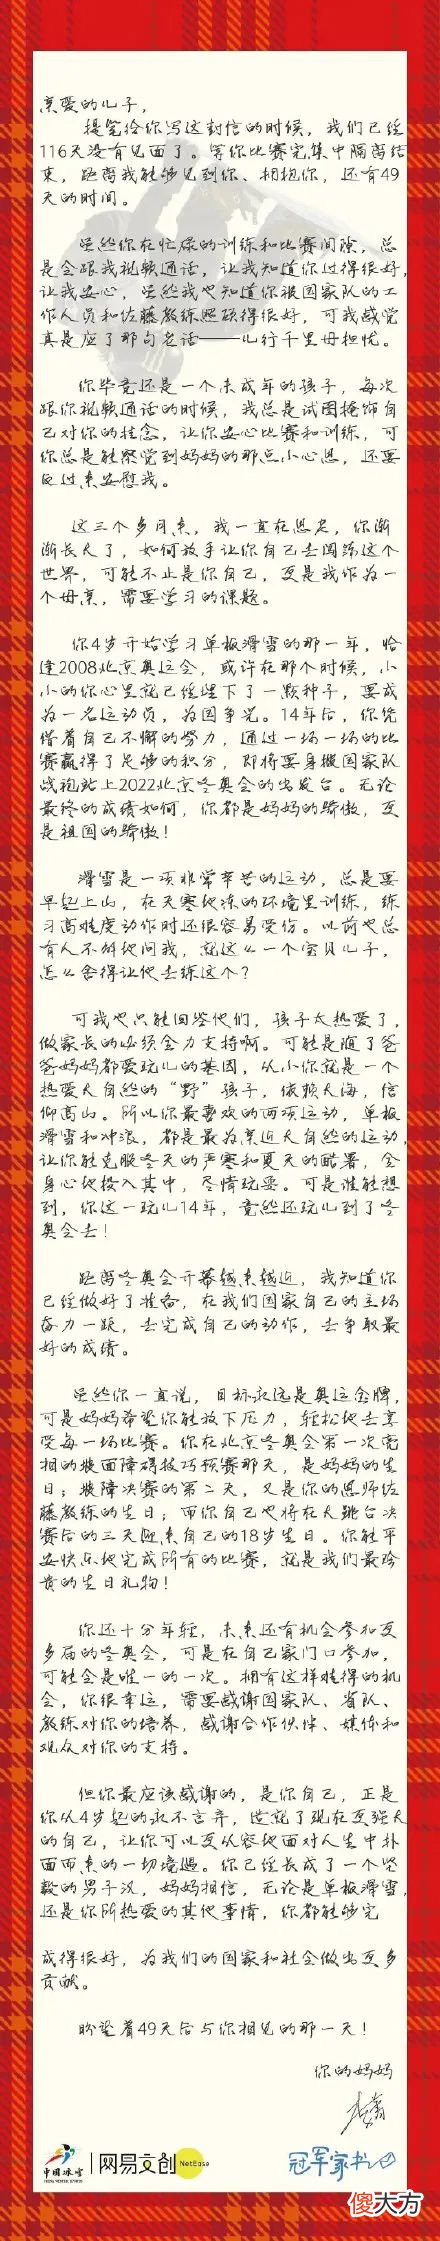 亲爱的儿子，
提笔给你写这封信的时候，我们已经
116天没有见面了。等你比赛完集中隔离结
束，距离我能够见到你、拥抱你，还有49
天的时间。
虽然你在忙碌的训练和比赛间隙，总
是会跟我视频通话，让我知道你过得很好，
让我安心，虽然我也知道你被国家队的工
作人员和佐藤教练照顾得很好，可我感觉
真是应了那句老话——儿行千里母担忧。
你毕竟还是一个未成年的孩子，每次
跟你视频通话的时候，我总是试图掩饰自
己对你的挂念，让你安心比赛和训练，可
你总是能察觉到妈妈的那点小心思，还要
反过来安慰我。
这三个多月来，我一直在思考，你渐
渐长大了，如何放手让你自己去闯荡这个
世界，可能不止是你自己，更是我作为一
个母亲，需要学习的课题。
你4岁开始学习单板滑雪的那一年，恰
逢2008北京奥运会，或许在那个时候，小
小的你心里就已经埋下了一颗种子，要成
为一名运动员，为国争光。14年后，你凭
借着自己不懈的努力，通过一场一场的比
赛赢得了足够的积分，即将要身披国家队
战袍站上2022北京冬奥会的出发台。无论
最终的成绩如何，你都是妈妈的骄傲，更
是祖国的骄傲！
滑雪是一项非常辛苦的运动，总是要
早起上山，在天寒地冻的环境里训练，练
习高难度动作时还很容易受伤。以前也总
有人不解地问我，就这么一个宝贝儿子，
怎么舍得让他去练这个？
可我也只能回答他们，孩子太热爱了，
做家长的必须全力支持啊。可能是随了爸
爸妈妈都爱玩儿的基因，从小你就是一个
热爱大自然的“野”孩子，依赖大海，信
仰高山。所以你最喜欢的两项运动，单板
滑雪和冲浪，都是最为亲近大自然的运动，
让你能克服冬天的严寒和夏天的酷暑，全
身心地投入其中，尽情玩耍。可是谁能想
到，你这一玩儿14年，竟然还玩儿到了冬
奥会去！
距离冬奥会开幕越来越近，我知道你
已经做好了准备，在我们国家自己的主场
奋力一跃，去完成自己的动作，去争取最
好的成绩。
虽然你一直说，目标永远是奥运金牌，
可是妈妈希望你能放下压力，轻松地去享
受每一场比赛。你在北京冬奥会第一次亮
相的坡面障碍技巧预赛那天，是妈妈的生
日；坡障决赛的第二天，又是你的恩师佐
藤教练的生日；而你自己也将在大跳台决
赛后的三天迎来自己的18岁生日。你能平
安快乐地完成所有的比赛，就是我们最珍
贵的生日礼物！
你还十分年轻，未来还有机会参加更
多届的冬奥会，可是在自己家门口参加，
可能会是唯一的一次。拥有这样难得的机
会，你很幸运，需要感谢国家队、省队、
教练对你的培养，感谢合作伙伴、媒体和
观众对你的支持。
但你最应该感谢的，是你自己，正是
你从4岁起的永不言弃，造就了现在更强大
的自己，让你可以更从容地面对人生中扑
面而来的一切境遇。你已经长成了一个坚
毅的男子汉，妈妈相信，无论是单板滑雪，
还是你所热爱的其他事情，你都能够完
成得很好，为我们的国家和社会做出更多
贡献。
盼望着49天后与你相见的那一天！
你的妈妈
中国冰雪 网易文创 NetEase 冠军家书
傻大方